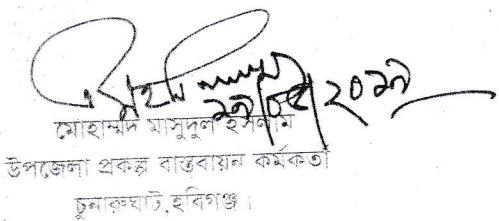 মোহাম্মদ মাসুদুল ইসলাম
উপজেলা প্রকল্প বাস্তবায়ন কর্মকর্তা
চুনারুঘাট, হবিগঞ্জ।